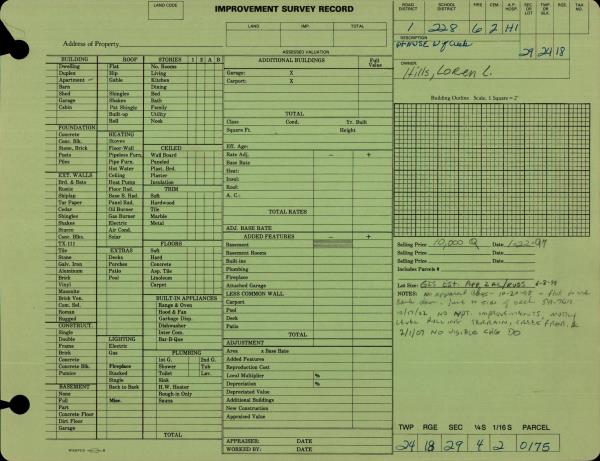 LAND CODE
IMPROVEMENT SURVEY RECORD
LAND IMP. TOTAL
Address of Property
ASSESSED VALUATION
ROAD DISTRICT SCHOOL DISTRICT FIRE CEM. A.P. HOSP. SEC OR LOT TWP OR BLK. RGE. TAX.
1 228 6 2 H1
DESCRIPTION
29 24 18
OWNER:
Hills, Loren L.
BUILDING ROOF STORIES 1 2 A B
Dwelling Flat No. Rooms
Duplex Hip Living
Apartment Gable Kitchen
Barn Dining
Shed Shingles Bed
Garage Shakes Bath
Cabin Pat Shingle Family
Built-up Utility
Roll Nook
FOUNDATION
Concrete HEATING
Conc. Blk. Stoves
Stone, Brick Floor-Wall CEILED
Posts Pipeless Furn. Wall Board
Piles Pipe Furn. Paneled
Hot Water Plast. Brd.
EXT. WALLS Ceiling Plaster
Brd. & Bats Heat Pump Insulation
Rustic Floor Rad. TRIM
Shiplap Base B. Rad. Soft
Tar Paper Panel Rad. Hardwood
Cedar Oil Burner Tile
Shingles Gas Burner Marble
Shakes Electric Metal
Stucco Air Cond.
Conc. Blks. Solar
TX-111 FLOORS
Tile EXTRAS Soft
Stone Decks Hard
Galv. Iron Porches Concrete
Aluminum Patio Asp. Tile
Brick Pool Linoleum
Vinyl Carpet
Masonite
Brick Ven. BUILT-IN APPLIANCES
Com. Sel. Range & Oven
Roman Hood & Fan
Rugged Garbage Disp.
CONSTRUCT. Dishwasher
Single Inter Com.
Double LIGHTING Bar-B-Que
Frame Electric
Brick Gas PLUMBING
Concrete 1st G. 2nd G.
Concrete Blk. Fireplace Shower Tub
Pumice Stacked Toilet Lav.
Single Sink
BASEMENT Back to Back H.W. Heater
None Rough-in Only
Full Misc. Sauna
Part
Concrete Floor
Dirt Floor
Garage
TOTAL
ADDITIONAL BUILDINGS Full Value
Garage: X
Carport: X
TOTAL
Class Cond. Yr. Built
Square Ft. Height
Eff. Age:
Rate Adj. − +
Base Rate
Heat:
Insul:
Roof:
A. C.:
TOTAL RATES
ADJ. BASE RATE
ADDED FEATURES − +
Basement
Basement Rooms
Built-ins
Plumbing
Fireplace
Attached Garage
LESS COMMON WALL
Carport
Pool
Deck
Patio
TOTAL
ADJUSTMENT
Area x Base Rate
Added Features
Reproduction Cost
Local Multiplier %
Depreciation %
Depreciated Value
Additional Buildings
New Construction
Appraised Value
APPRAISER: DATE
WORKED BY: DATE
Building Outline Scale, 1 Square = 2'
Selling Price 10,000 Q Date 1-22-97
Selling Price Date
Selling Price Date
Includes Parcels #
Lot Size:
NOTES:
NO APPT. IMPROVEMENTS, MOSTLY
LEVEL ROLLING TERRAIN,
2/1/07 NO VISIBLE CHG DO
TWP RGE SEC ¼S 1/16 S PARCEL
24 18 29 4 2 0175